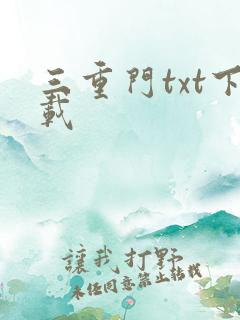 三重門txt下
載
讓我打野
未經同意禁止轉載